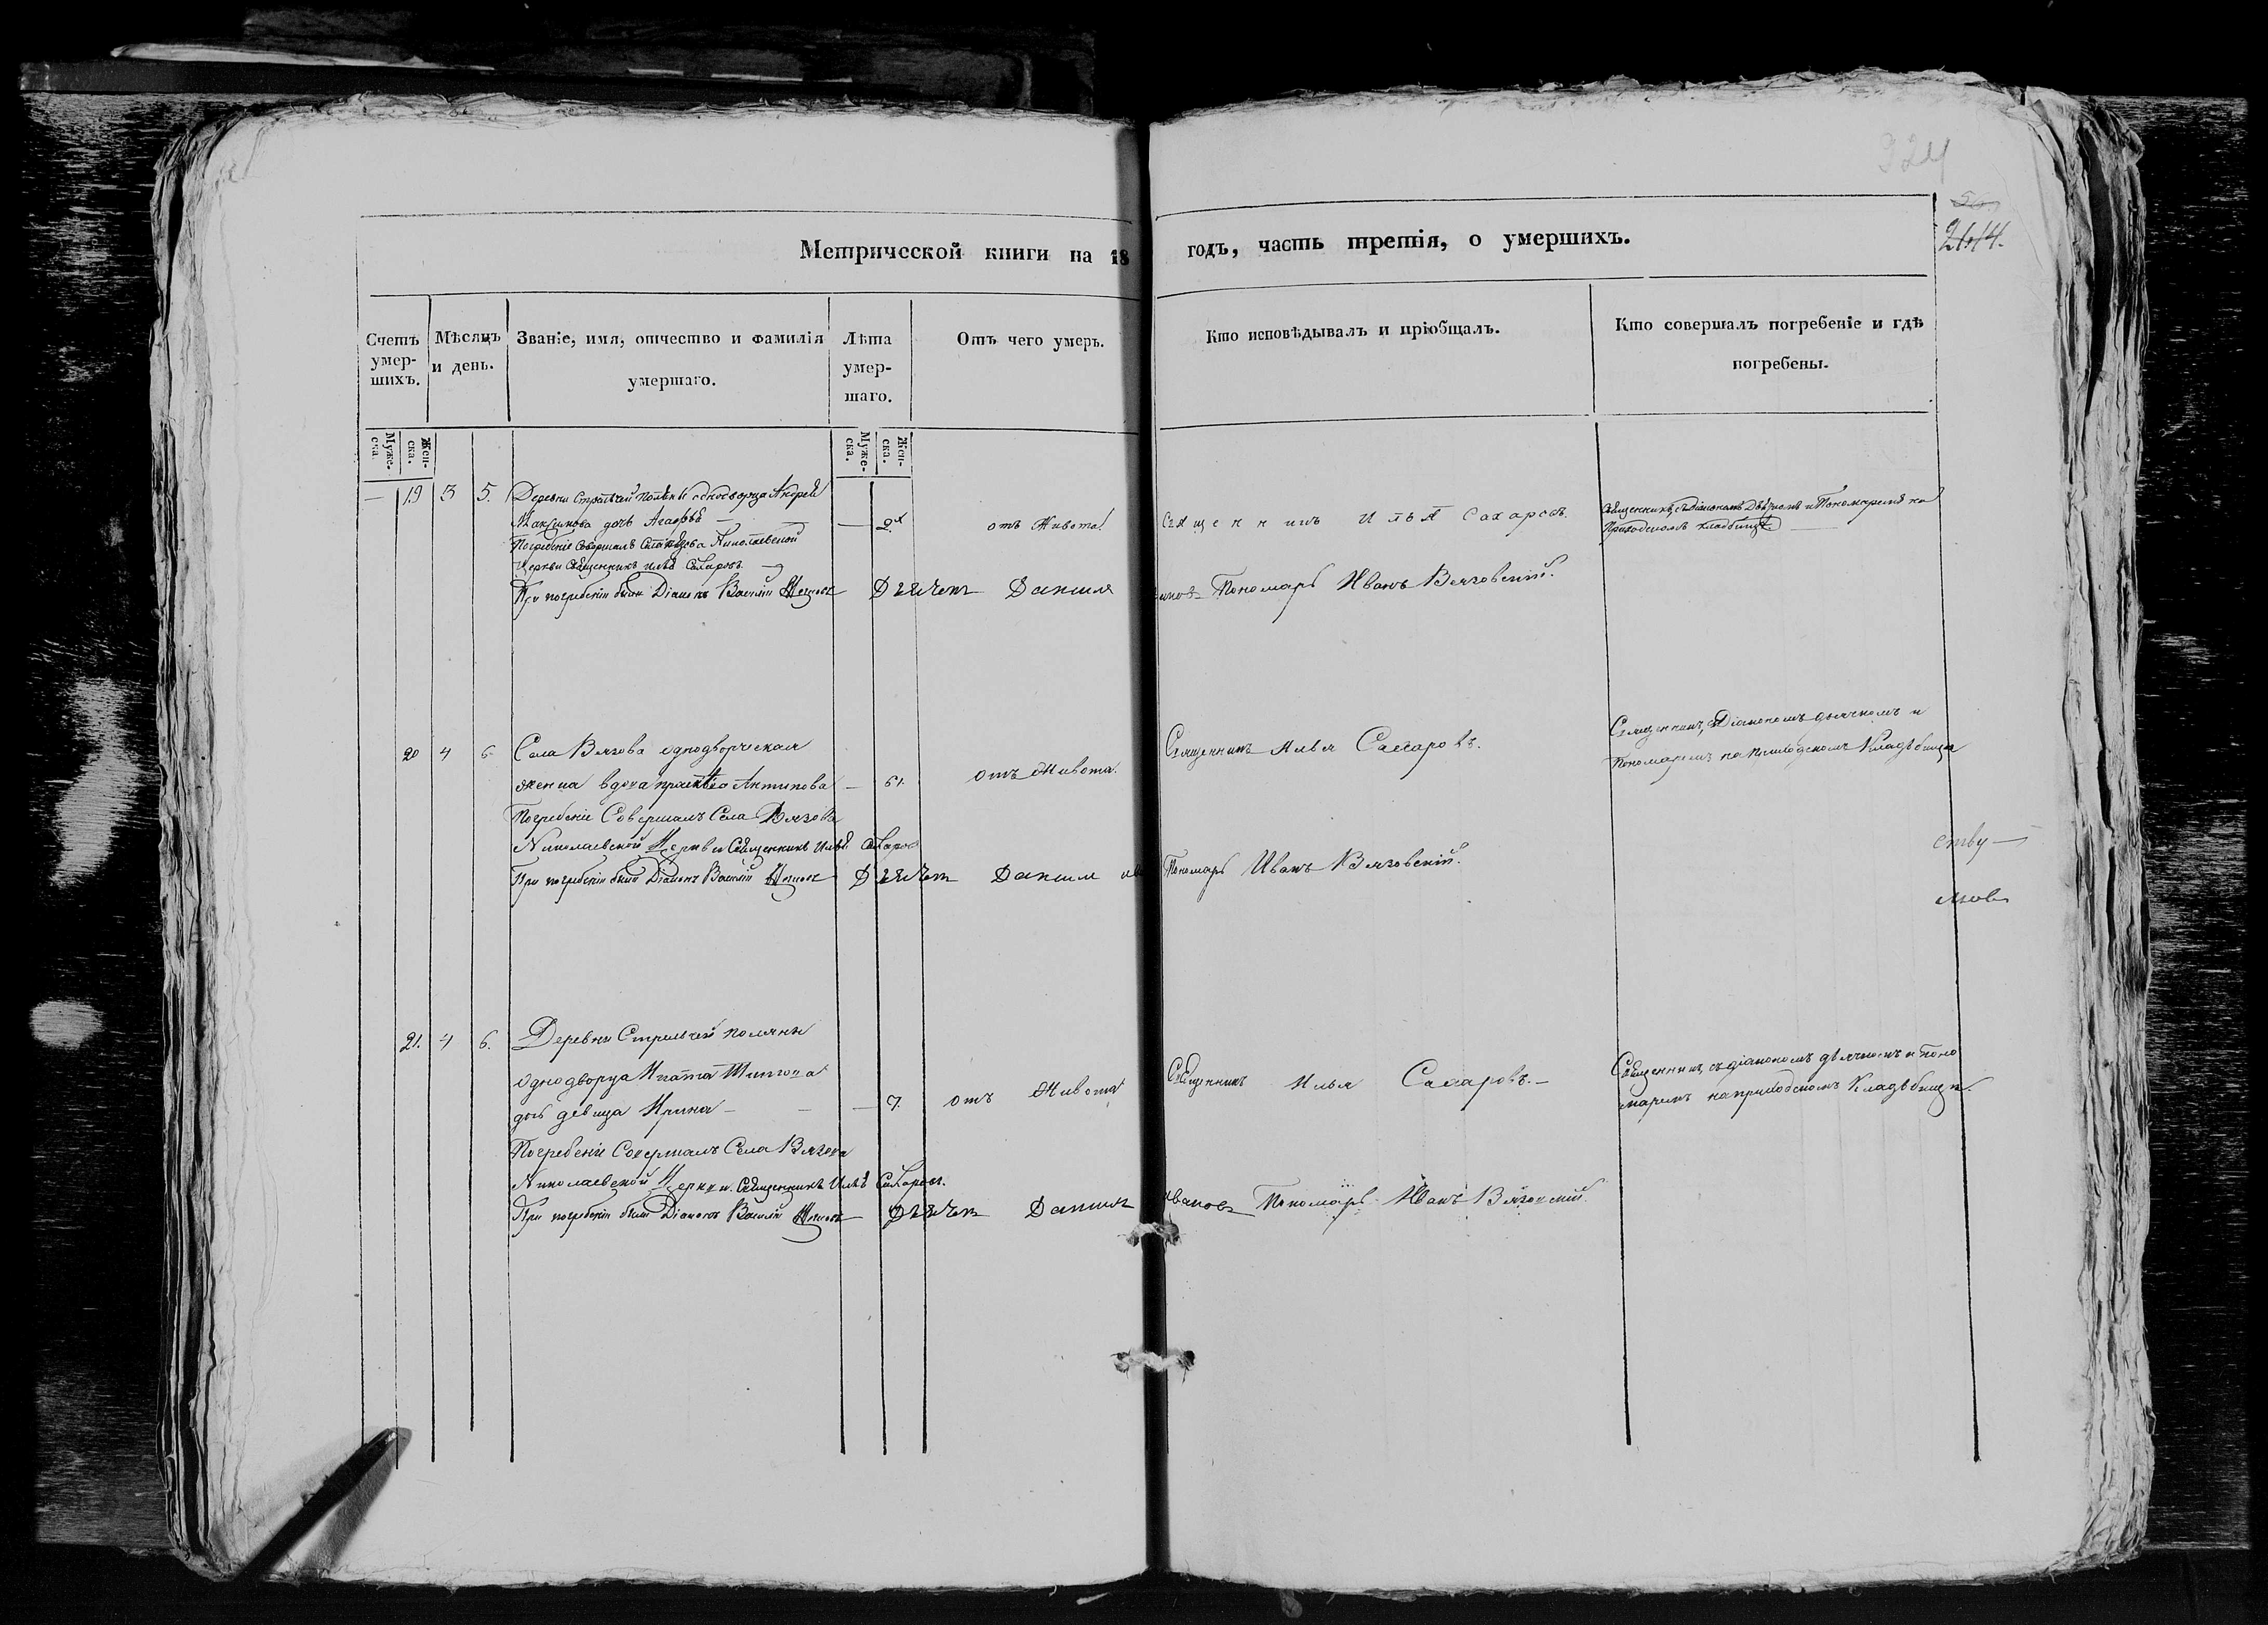 324
2614.
Метрической книги на 18 годъ, часть третія, о умершихъ.
Счетъ умер-шихъ.
Мѣсяцъ и день.
Званіе, имя, отчество и фамилія умершаго.
Лѣта умер-шаго.
Отъ чего умеръ.
Кто исповѣдывалъ и пріобщалъ.
Кто совершалъ погребеніе и гдѣ погребены.
Муже-ска.
Жен-ска.
Муже-ска.
Жен-ска.
— 19 3 5. Деревни Стрѣлчей Поляны однодворца Андрея
Максимова дочь Агафья — 2х отъ Живота. Священникъ Илья Сахаровъ.
Священникъ съ Діакономъ Дьячкомъ и Пономаремъ на
Приходскомъ кладбище
Погребеніе совершалъ Села Вязова Николаевской
Церкви Священникъ Илья Сахаровъ
При погребеніи были Діаконъ Василій Дьячекъ Данила Ивановъ Пономарь Иванъ Вязовский.
20 4 6 Села Вязова однодворческая
женка вдова Антипова — 61. отъ Живота. Священникъ Илья Сахаровъ.
Священникъ съ Діакономъ дьячкомъ и
Пономаремъ на приходскомъ Кладбище
Погребеніе Совершалъ Села Вязова
Николаевской Церкви Священникъ Илья Сахаровъ
При погребеніи были Діаконъ Василій Дьячекъ Данила Пономарь Иванъ Вязовскій.
ству —
21. 4 6. Деревни Стрелчей поляны
однодворца Игната
дочь девица Ирина — — 7. отъ Живота Священникъ Илья Сахаровъ. —
Священникъ съ діакономъ дьячкомъ и поно
маремъ на приходскомъ Кладбище.
Погребеніе Совершалъ Села Вязова
Николаевской Церкви Священникъ Илья Сахаровъ.
При погребеніи были Діаконъ Василій Дьячекъ Данила Ивановъ Пономарь Иванъ Вязовский.